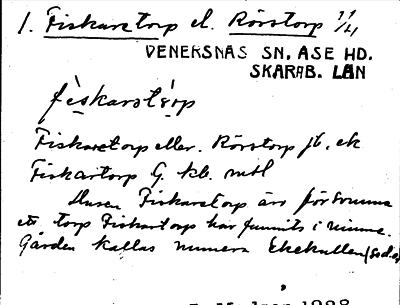 1. Fiskaretorp el. Rörstorp 1/4
VENERSNÄS SN. ÅSE HD.
SKARAB. LÄN
fiskarstorp
Fiskaretorp eller Rörstorp
Fiskartorp G. kb.
Husen Fiskaretorp är försvunna
ett torp Fiskartorp har funnits i minne.
Gården kallas numera Ekekullen
1928